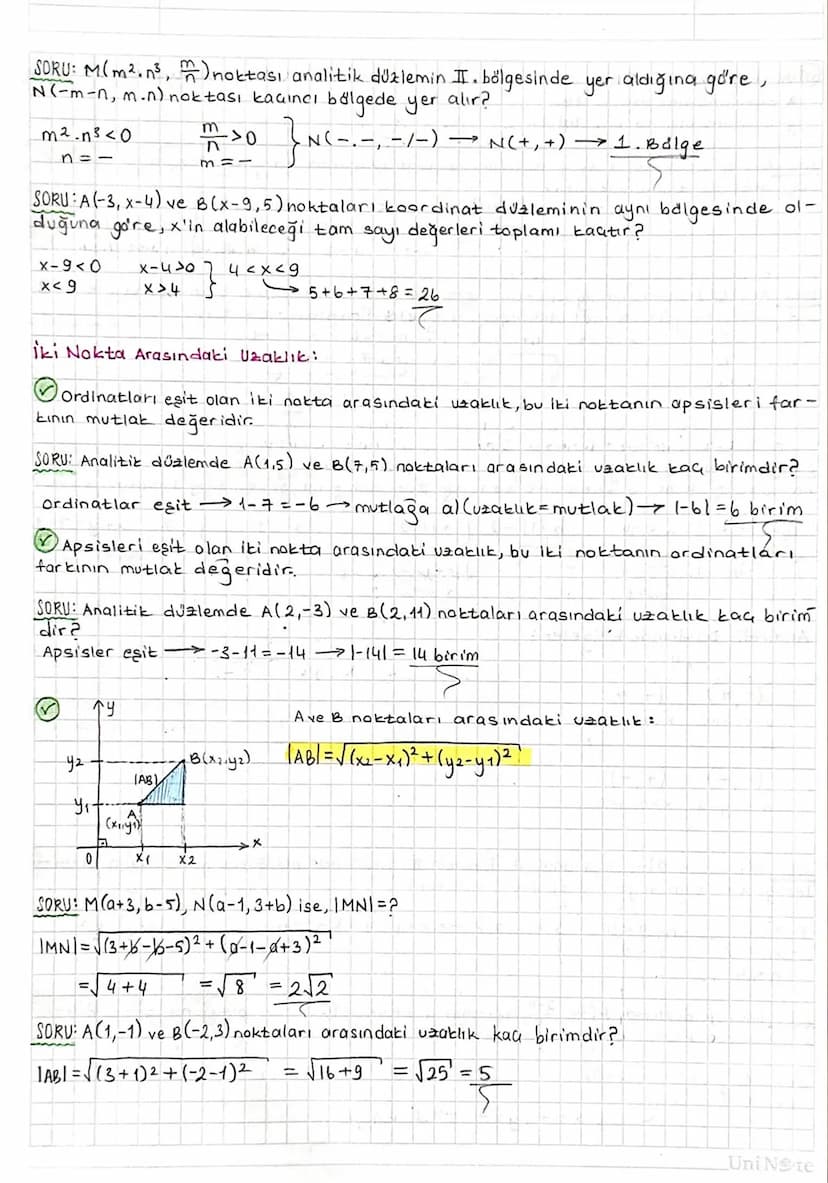 SORU: M(m².n³, m/n) noktası analitik düzlemin II. bölgesinde yer aldığına göre,
N(-m-n, m.n) noktası kaçıncı bölgede yer alır?
m².n³<0 m/n >0 } N(-.-, -/-) → N(+,+) → 1. Bölge
n = - m = -
SORU: A(-3, x-4) ve B(x-9,5) noktaları koordinat düzleminin aynı bölgesinde ol-
duğuna göre, x'in alabileceği tam sayı değerleri toplamı kaçtır?
x-9<0 x-4>0 } 4<x<9
x<9 x>4 → 5+6+7+8 = 26
İki Nokta Arasındaki Uzaklık:
✓ Ordinatları eşit olan iki nokta arasındaki uzaklık, bu iki noktanın apsisleri far-
kının mutlak değeridir.
SORU: Analitik düzlemde A(1,5) ve B(7,5) noktaları arasındaki uzaklık kaç birimdir?
ordinatlar eşit → 1-7 = -6 → mutlağa al (uzaklık=mutlak) → |-6| = 6 birim
✓ Apsisleri eşit olan iki nokta arasındaki uzaklık, bu iki noktanın ordinatları
farkının mutlak değeridir.
SORU: Analitik düzlemde A(2,-3) ve B(2,11) noktaları arasındaki uzaklık kaç birim
dir?
Apsisler eşit → -3-11 = -14 → |-14| = 14 birim
✓ y
A ve B noktaları arasındaki uzaklık:
y2 B(x2,y2) |AB| = √(x2-x1)²+(y2-y1)²
|AB|
y1 A
(x1,y1)
x
0 x1 x2
SORU: M(a+3, b-5), N(a-1, 3+b) ise, |MN|=?
|MN| = √(3+b-b-5)²+(a-1-a+3)²
= √4+4 = √8 = 2√2
SORU: A(1,-1) ve B(-2,3) noktaları arasındaki uzaklık kaç birimdir?
|AB| = √(3+1)²+(-2-1)² = √16+9 = √25 = 5
UniNote